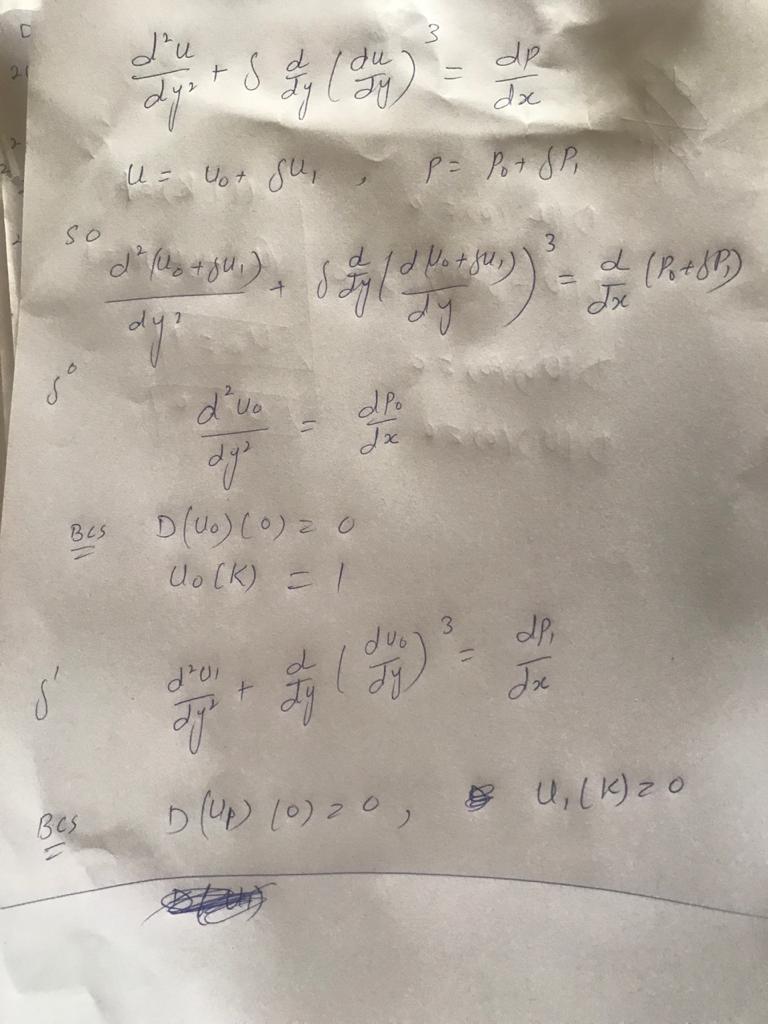 d²u/dy² + δ d/dy (du/dy)³ = dp/dx
u = u₀ + δu₁ , P = P₀ + δP₁
so
d²(u₀ + δu₁)/dy² + δ d/dy (d(u₀ + δu₁)/dy)³ = d/dx (P₀ + δP₁)
δ⁰
d²u₀/dy² = dP₀/dx
BCs D(u₀)(0) = 0
u₀(K) = 1
δ¹ d²u₁/dy² + d/dy (du₀/dy)³ = dP₁/dx
BCs D(u₁)(0) = 0 , u₁(K) = 0